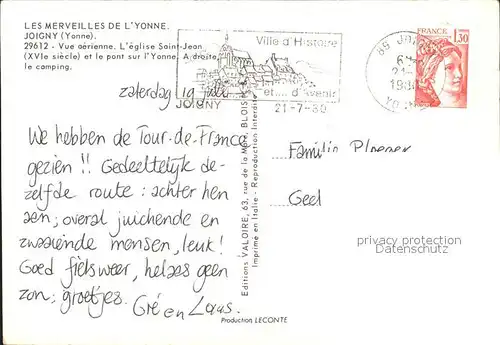 LES MERVEILLES DE L'YONNE.
JOIGNY (Yonne).
29612 - Vue aérienne. L'église Saint-Jean
(XVIe siècle) et le pont sur l'Yonne. A droite,
le camping.
Ville d'Histoire
et.... d'Avenir
JOIGNY
21-7-80
FRANCE
1,30
zaterdag 19 juli
We hebben de Tour-de-France
gezien !! Gedeeltelijk de-
zelfde route : achter hen
aan; overal juichende en
zwaaiende mensen, leuk!
Goed fietsweer, helaas geen
zon; groetjes.
Gré en
Editions VALOIRE, 63, rue de la Mare, BLOIS
Imprimé en Italie - Reproduction Interdite
Familie
Geel
privacy protection
Datenschutz
Production LECONTE